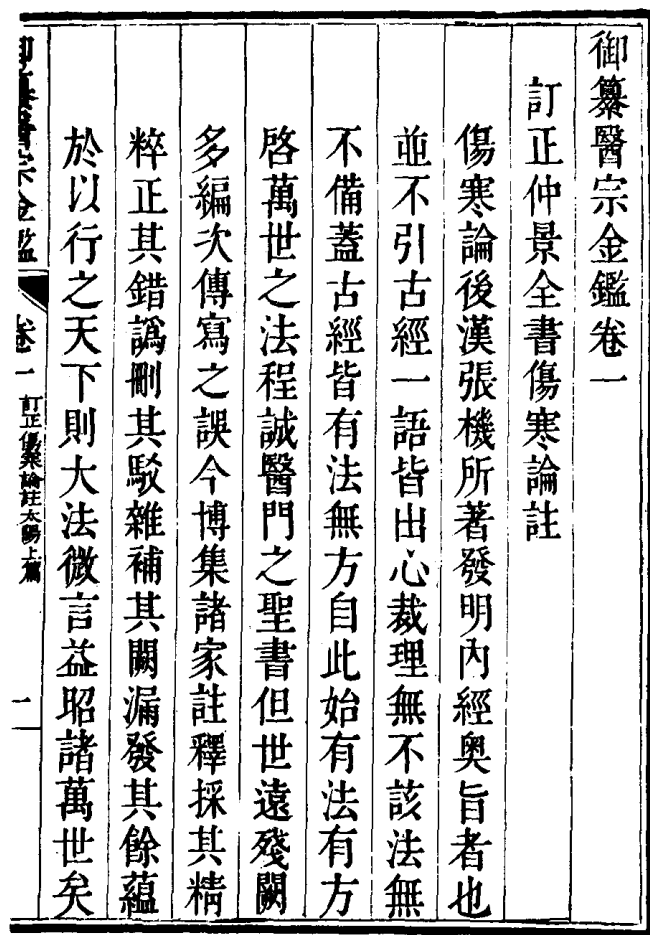 御纂醫宗金鑑卷一
訂正仲景全書傷寒論註
傷寒論後漢張機所著發明內經奥旨者也
並不引古經一語皆出心裁理無不該法無
不備蓋古經皆有法無方自此始有法有方
啓萬世之法程誠醫門之聖書但世遠殘闕
多編次傳寫之誤今博集諸家註釋採其精
粹正其錯譌刪其駁雜補其闕漏發其餘蘊
於以行之天下則大法微言益昭諸萬世矣
御纂醫宗金鑑 卷一 訂正傷寒論註太陽上篇 一